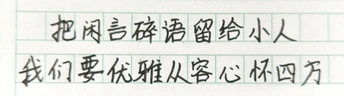 把闲言碎语留给小人
我们要优雅从容心怀四方